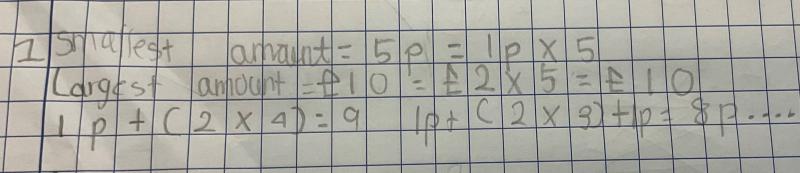 1 Smallest amount = 5p = 1p x 5
Largest amount = £10 = £2 x 5 = £10
1p + (2 x 4) = 9 1p + (2 x 3) + 1p = 8p....